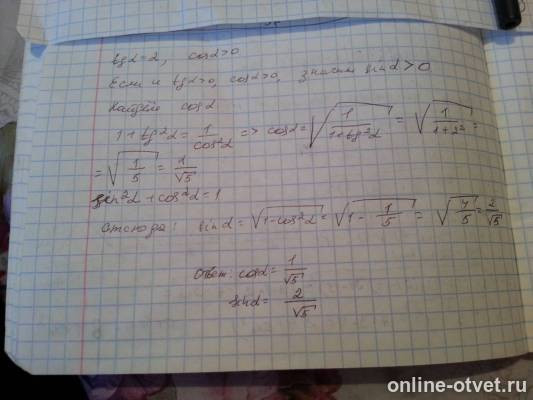 tgα=2, cosα>0
Если и tgα>0, cosα>0, значит sinα>0
Найдём cosα
1+tg²α = 1/cos²α => cosα = √(1/(1+tg²α)) = √(1/(1+2²)) =
= √(1/5) = 1/√5
sin²α + cos²α = 1
Отсюда: sinα = √(1-cos²α) = √(1 - 1/5) = √(4/5) = 2/√5
Ответ: cosα = 1/√5
sinα = 2/√5
online-otvet.ru